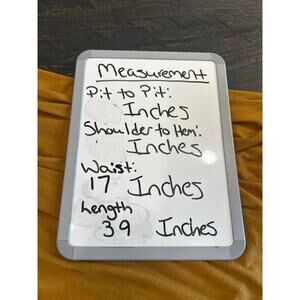 Measurement
Pit to Pit:
Inches
Shoulder to Hem:
Inches
Waist:
17 Inches
Length
39 Inches